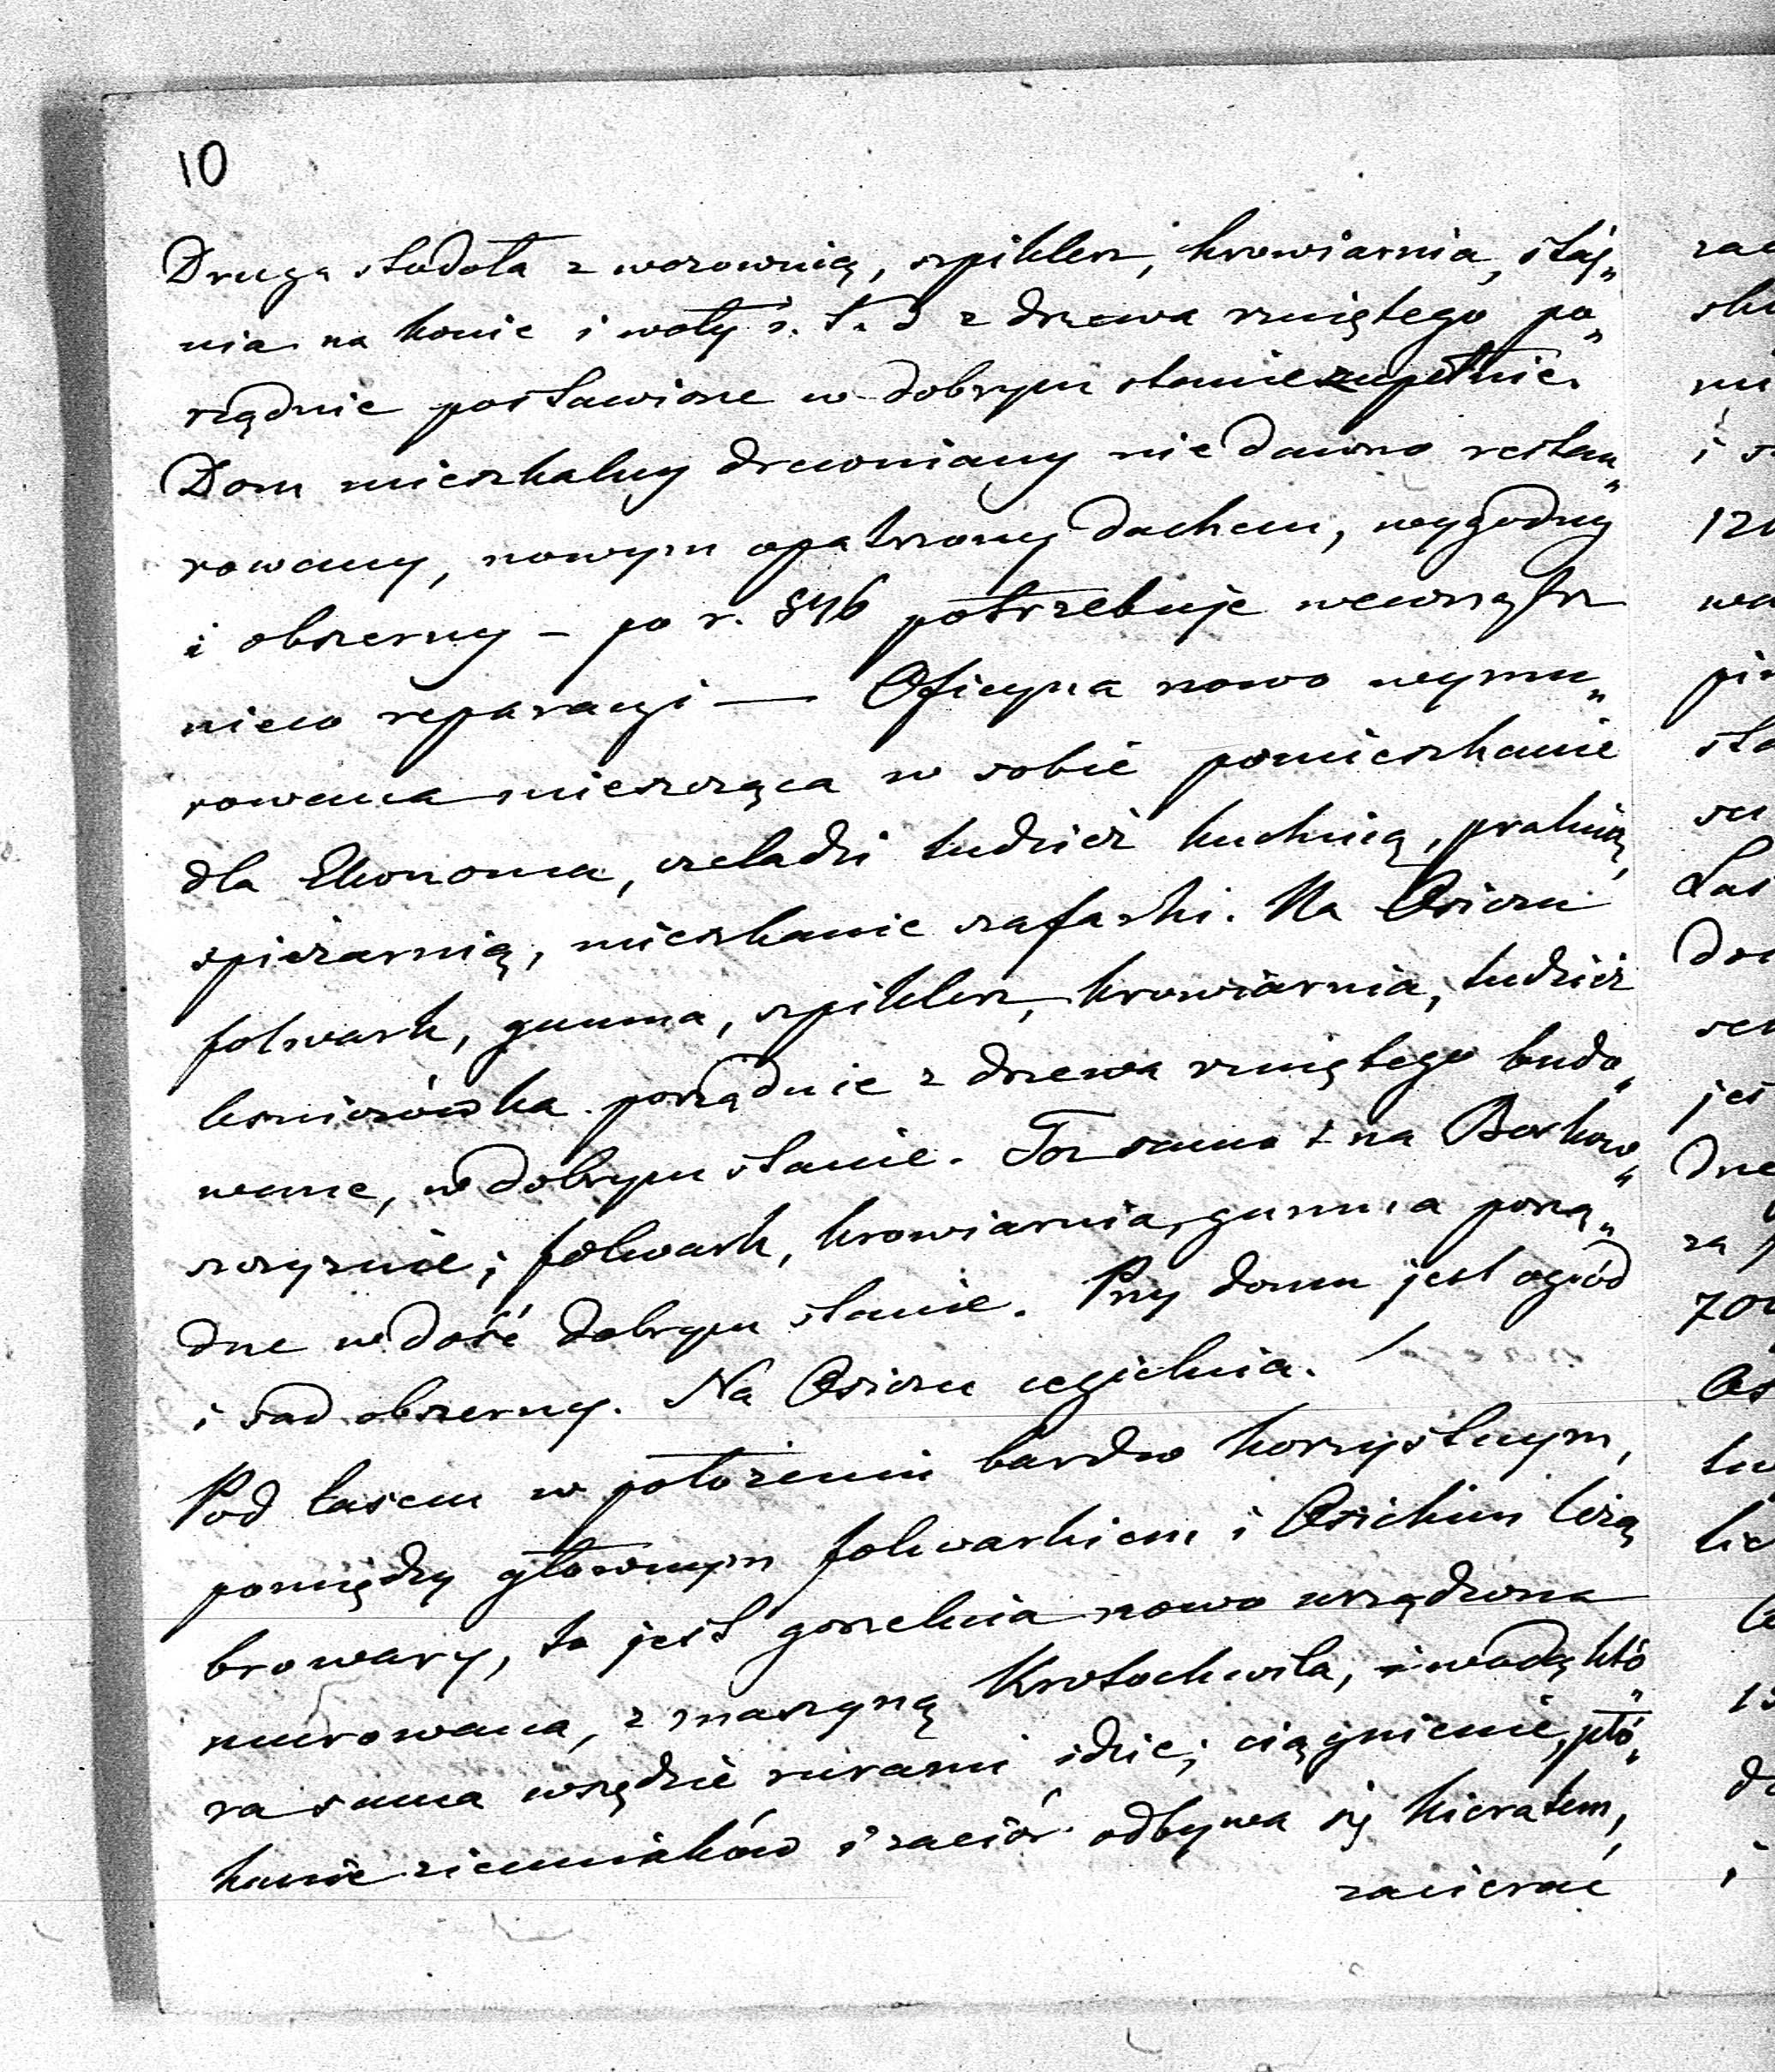 10
Druga stodoła z wozownią, szpiklerz, krowiarnia, stáj„
nia na konie i woły i. t. d z drzewa rzniętego po„
rządnie postawione w dobrym stanie zupełnie.
Dom mieszkalny drewniany nie dawno restau„
rowany, nowym opatrzony dachem, wygodny
i obszerny – po r. 846 potrzebuje wewnątrz
nieco reparacyi — Oficyna nowo wymu„
rowana mieszcząca w sobie pomieszkanie
dla Ekonoma, czeladzi tudzież kuchnią, pralnią,
spiżarnią, mieszkanie szafarki. Na Osieku
folwark, gumna, szpiklerz, krowiarnia, tudzież
leśniczówka porządnie z drzewa rzniętego budo„
wane, w dobrym stanie. Toż samo i na Borkow„
szczyznie; folwark, krowiarnia, gumna porzą„
dne w dość dobrym stanie. Przy domu jest ogród
i sad obszerny. Na Osieku cegielnia.
Pod lasem w położeniu bardzo korzystnym,
pomiędzy głównym folwarkiem i Osiekiem leżą
browary, to jest gorzelnia nowo urządzona
murowana, z maszyną Krotochwila, i wodą któ„
ra sama wszędzie rurami idzie; ciągnienie, płó„
kanie ziemniaków i zaciór odbywa się kieratem,
zacierać
zac
ni
i s
120
wa
pi
sto
Las
jes
dne
za
700
Os
lic
13
i